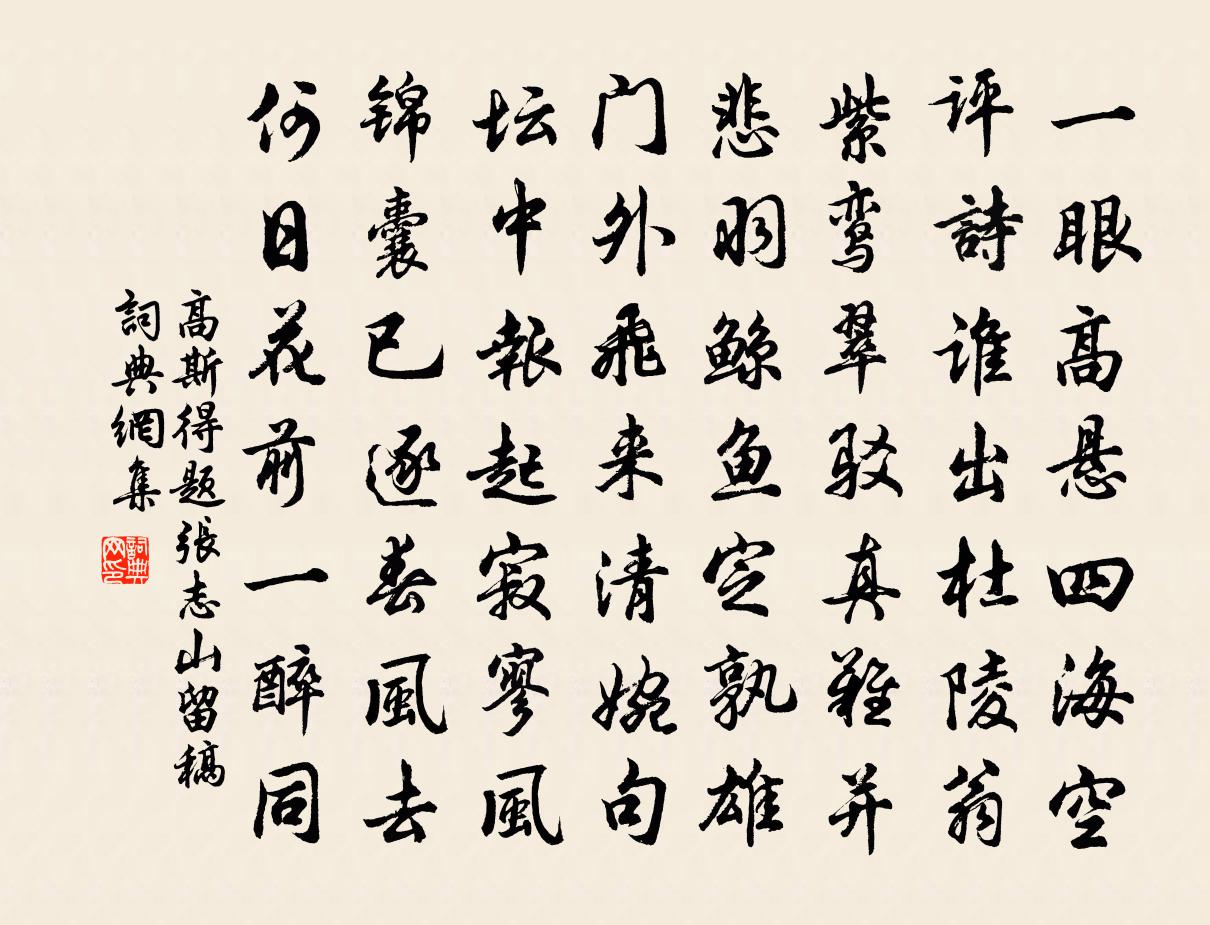 一眼高悬四海空
评詩谁出杜陵翁
紫鸾翠駁真難并
悲羽鲸鱼定孰雄
门外飛来清婉句
坛中報起寂寥風
锦囊已逐春風去
何日花前一醉同
高斯得題張志山留稿
詞典網集
詞典网印